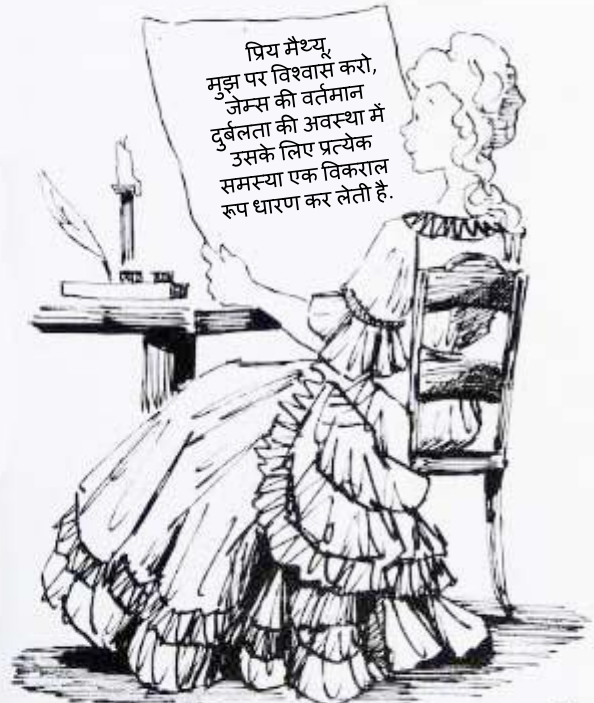 प्रिय मैथ्यू,
मुझ पर विश्वास करो,
जेम्स की वर्तमान
दुर्बलता की अवस्था में
उसके लिए प्रत्येक
समस्या एक विकराल
रूप धारण कर लेती है.